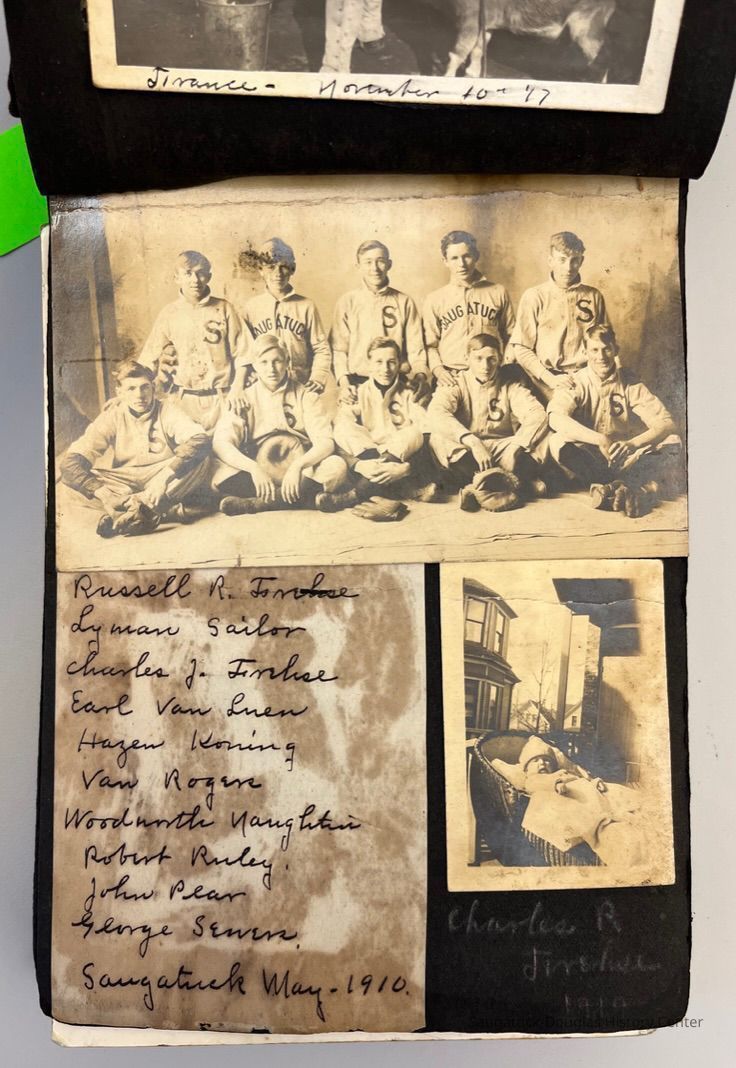 France - November 10th '17
S
SAUGATUCK
S
SAUGATUCK
S
S
S
S
S
S
Russell R. Firehse
Lyman Sailor
Charles J. Firehse
Earl Van Luen
Hazen Koning
Van Rogers
Woodworth Naughtin
Robert Ruley.
John Pear
George Sewers
Saugatuck May - 1910.
Charles R
1910
Saugatuck-Douglas History Center